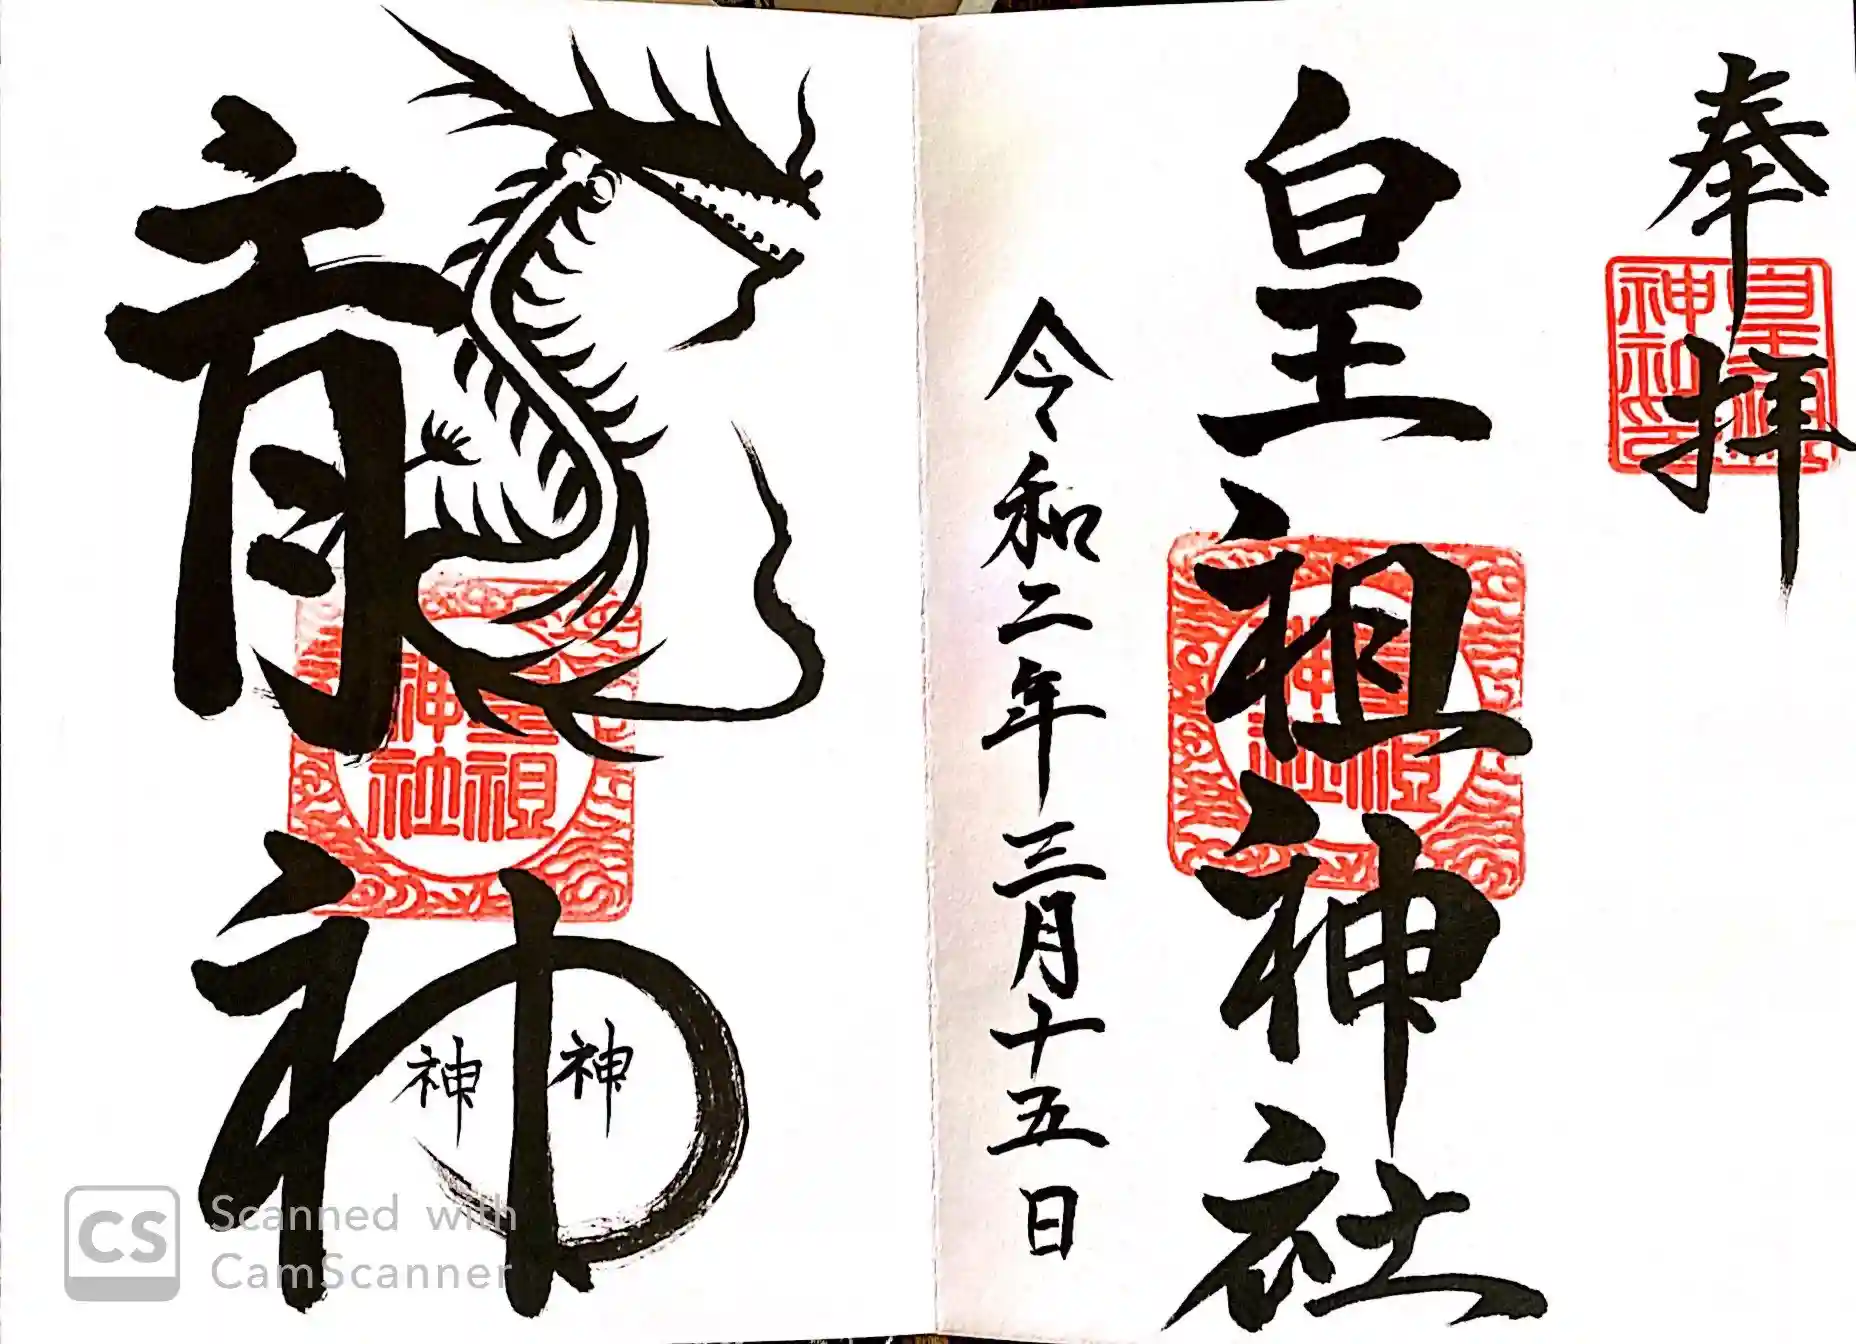 奉拝
皇祖神社
令和二年三月十五日
龍神
神 神
皇祖神社
皇祖神社
CS Scanned with
CamScanner